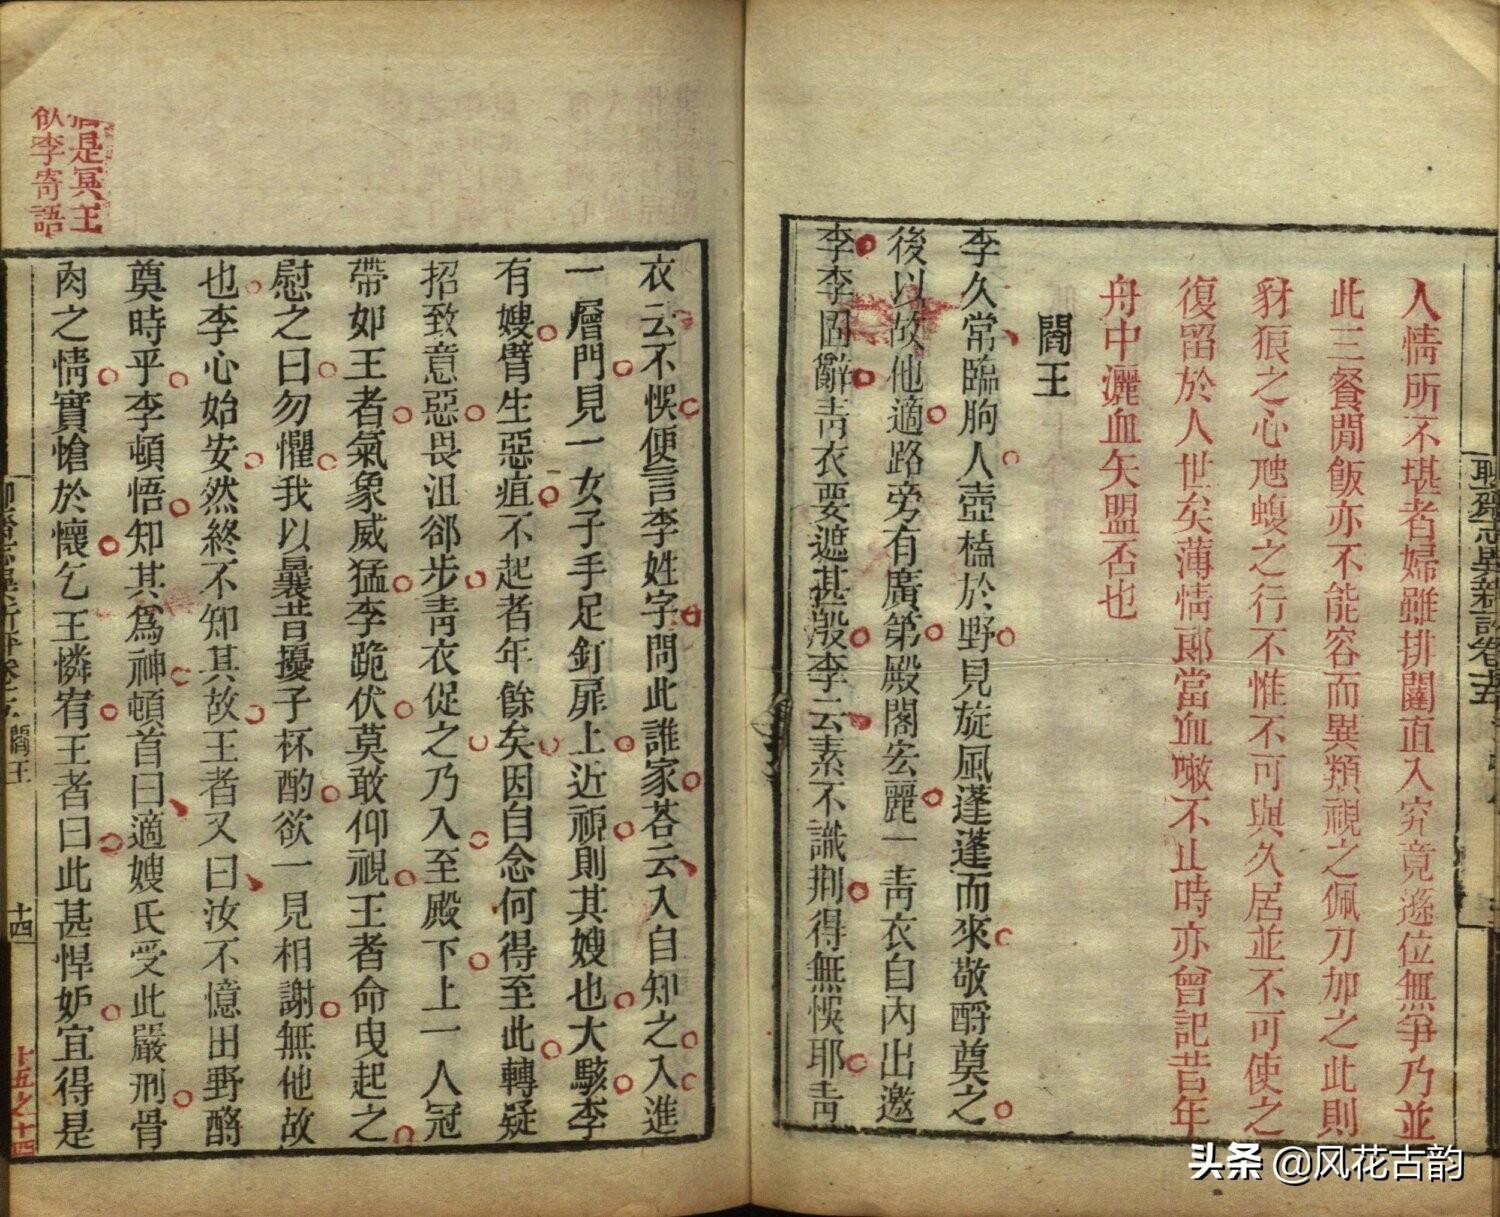 人情所不堪者婦雖排闥直入究竟遜位無爭乃並
此三餐閒飯亦不能容而異類視之佩刀加之此則
豺狼之心虺蝮之行不惟不可與久居並不可使之
復留於人世矣薄情郎當血嗽不止時亦曾記昔年
舟中灑血矢盟否也
閻王
李久常臨朐人壺榼於野見旋風蓬蓬而來敬酹奠之
後以故他適路旁有廣第殿閣宏麗一靑衣自內出邀
李李固辭靑衣要遮甚殷李云素不識荆得無悞耶靑
衣云不悞便言李姓字問此誰家荅云入自知之入進
一層門見一女子手足釘扉上近視則其嫂也大駭李
有嫂臂生惡疽不起者年餘矣因自念何得至此轉疑
招致意惡畏沮郤步靑衣促之乃入至殿下上一人冠
帶如王者氣象威猛李跪伏莫敢仰視王者命曳起之
慰之曰勿懼我以曩昔擾子杯酌欲一見相謝無他故
也李心始安然終不知其故王者又曰汝不憶田野酹
奠時乎李頓悟知其爲神頓首曰適嫂氏受此嚴刑骨
肉之情實愴於懷乞王憐宥王者曰此甚悍妒宜得是
是冥王
李寄語
閻王
十四
十五之十四
头条 @风花古韵